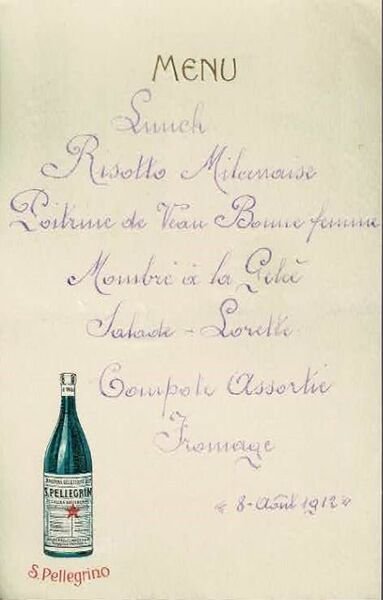 MENU
Lunch
Risotto Milanaise
Poitrine de Veau Bonne femme
Mombré à la Gelée
Salade - Lorette
Compote Assortie
Fromage
« 8 - Août 1912 »
S. PELLEGRINO
S. Pellegrino